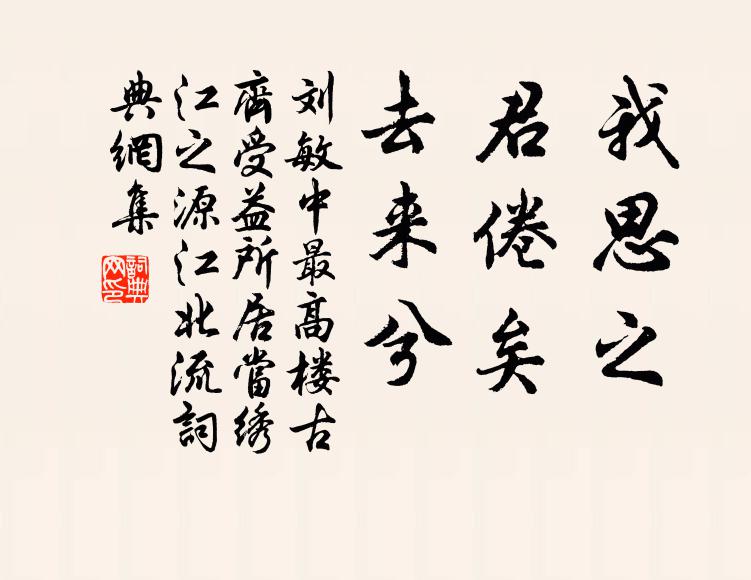 我思之
君倦矣
去来兮
刘敏中最高楼古
齋受益所居當绣
江之源江北流詞
典網集
詞典
网印